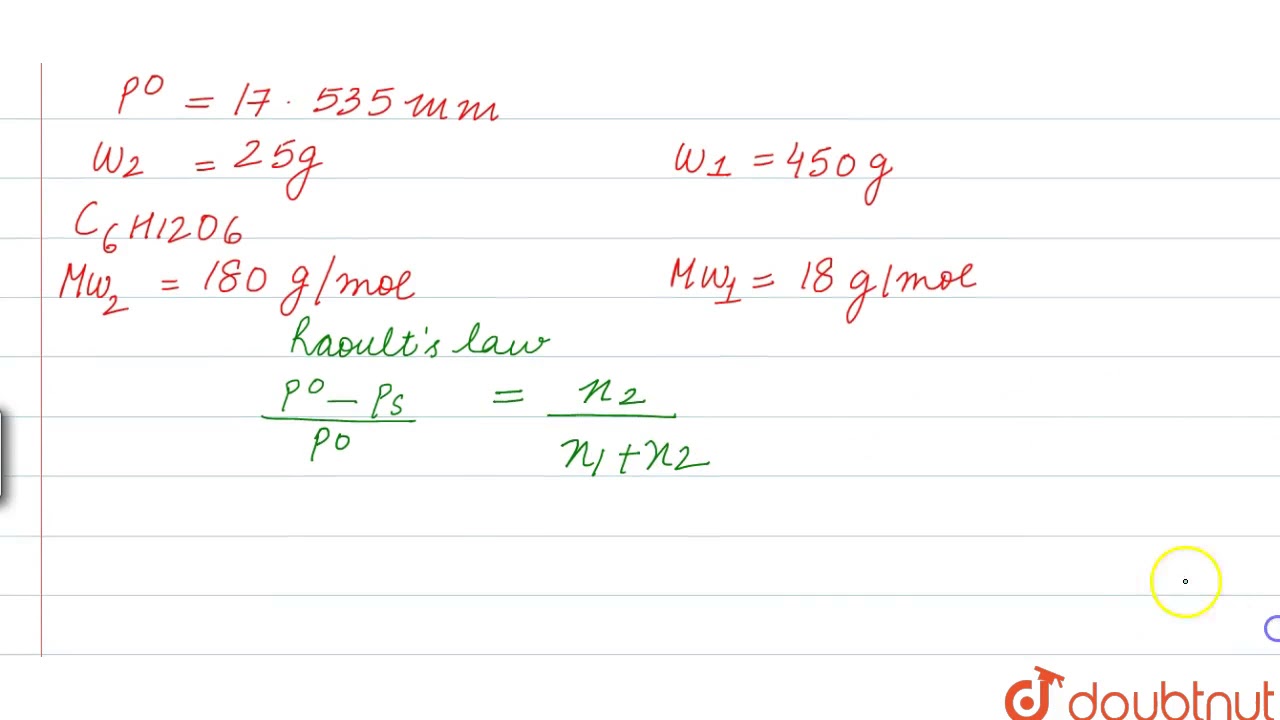 P⁰ = 17.535 mm
W₂ = 25g W₁ = 450 g
C₆H12O6
Mw₂ = 180 g/mol Mw₁ = 18 g/mol
Raoult's law
P⁰ - Ps / P⁰ = n₂ / n₁ + n₂
doubtnut